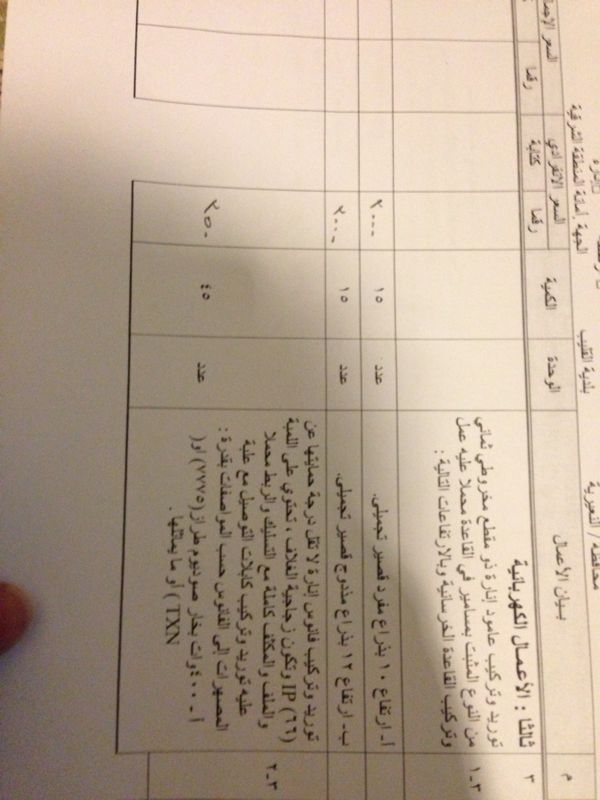 الجهة أمانة المنطقة الشرقية
بلدية القليب
محافظة / النعيرية
م
بيان الأعمال
الوحدة
الكمية
السعر الانفرادي
رقما
كتابة
رقما
٣
ثالثا : الأعمال الكهربائية
٣-١
توريد وتركيب عامود إنارة ذو مقطع مخروطي ثماني
من النوع المثبت بمسامير في القاعدة محملا عليه عمل
وتركيب القاعدة الخرسانية وبالارتفاعات التالية :
أ- ارتفاع ١٠ بذراع مفرد قصير تجميلي.
عدد
١٥
ب- ارتفاع ١٢ بذراع مزدوج قصير تجميلي.
عدد
١٥
٣-٢
توريد وتركيب فانوس إنارة لا تقل درجة حمايتها عن
IP (٦٦) وتكون زجاجية الغلاف ، تحتوي على اللمبة
والملف والمكثف كاملة مع التسليك والربط محملا
عليه توريد وتركيب كابلات التوصيل مع علبة
المصهرات إلى الفانوس حسب المواصفات بقدرة :
أ - ٤٠٠ وات بخار صوديوم طراز (٧٧٧٥) أو(
TXN ) أو ما يمثلها .
عدد
٤٥